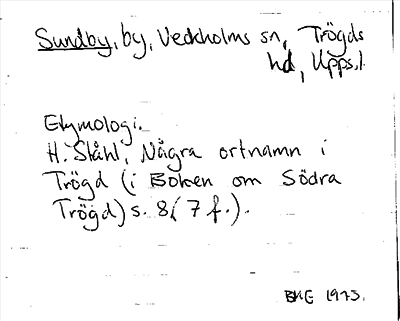 Sundby, by, Veckholms sn, Trögds
hd, Upps.l.
Etymologi.
H. Ståhl, Några ortnamn i
Trögd (i Boken om Södra
Trögd) s. 8 (7 f.).
BKE 1973.